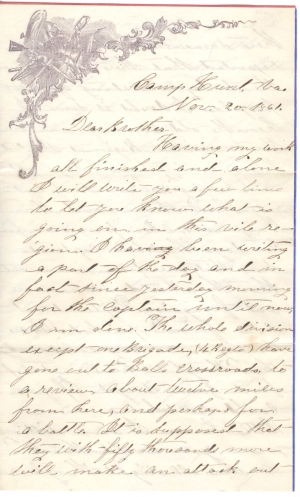 Camp Hunt, Va.
Nov. 20. 1861.
Dear Brother
Having my work
all finished and alone
I will write you a few lines
to let you know what is
going on in this vile re-
gion. I having been writing
a part of the day and in
fact since yesterday morning
for the Captain until now
I am done. The whole division
except one Brigade, (4 Regts) have
gone out to Balls crossroads to
a review about twelve miles
from here, and perhaps for
a battle. It is supposed that
they with fifty thousand more
will make an attack out